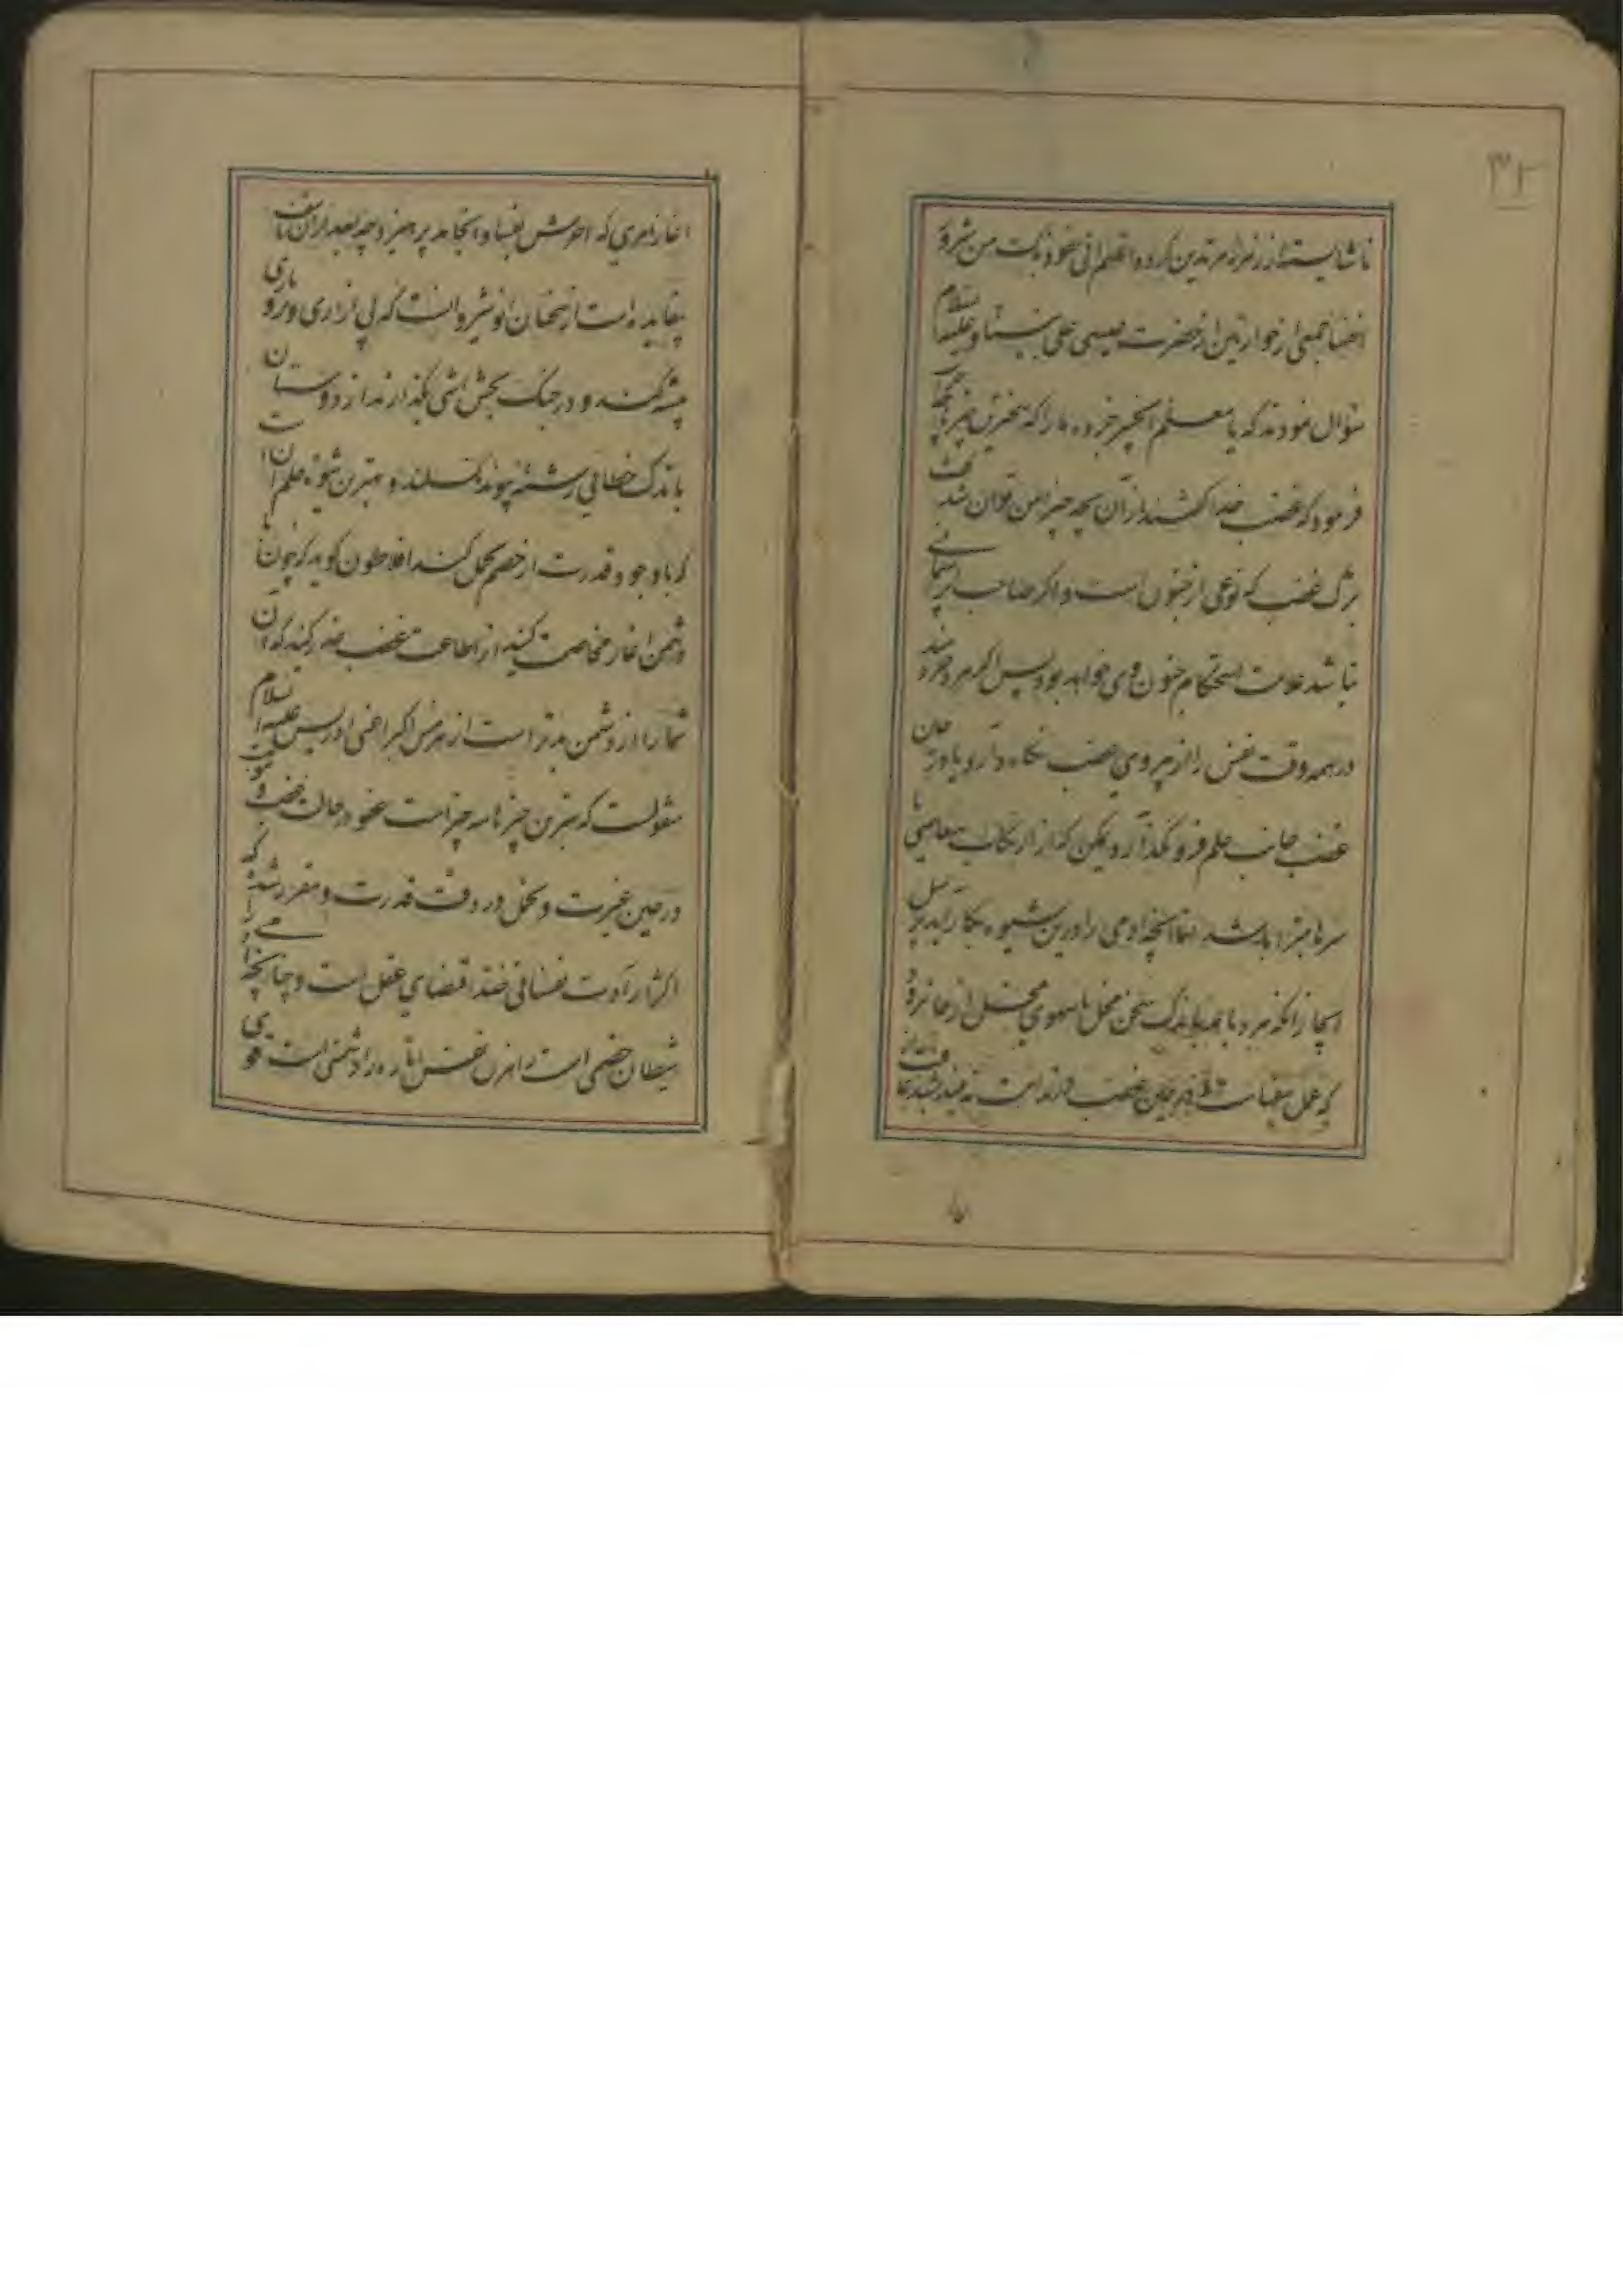 ۳۲
ناشایسته از زمره مرتدین کرده اعظم انی نخوذ بک من شرور
جمعی از حواریین از حضرت عیسی علی نبینا و علیه السلام
سؤال نمودند که یا معلم الخیر خبر ده ما را که سخت‌ترین چیزها چیست
فرمود که غضب خدا گفتند از آن بچه چیز ایمن توان شد گفت
بترک غضب که نوعی از جنون است و اگر صاحبش را پشیمانی
نباشد علامت استحکام جنون وی خواهد بود پس اگر مرد خردمند
در همه وقت نفس را از پیروی غضب نگاه دارد و یا در حان
غضب جانب حلم فرو نگذارد ممکن که از ارتکاب معاصی
سرها مبرا باشد اما آنچه آدمی را درین شیوه بکار آید
آنجا را نکه مرد باید باندک سخن مخل یا سهوی از جا نرود
که عمل در حین غضب
آغاز امری که آخرش بفساد انجامد پرهیزد چه بعد از آن تأسف
بیفایده است از سخنان انوشیروانست که بی آزاری و بردباری
پیشه کنند و در جنگ بخش آشتی بگذارند از دوستان
باندک خطائی رشته پیوند نگسلند و بهترین شیوه حلم آنست
که با وجود قدرت از خصم تحمل کنند افلاطون گوید که چون با
دشمن آغاز مخاصمت کنید از اطاعت غضب حذر کنید که آن
شما را از دشمن بدتر است از هرمس اکبر اعنی ادریس علیه السلام
منقولست که بهترین چیزها سه چیز است عفو در حالت غضب و
در حین عسرت و تحمل در وقت قدرت و مقرر شده که
اکثر ارادت نفسانی ضد اقتضای عقل است و چنانچه
شیطان خصمی است راهزن نفس اماره را دشمنی است قوی